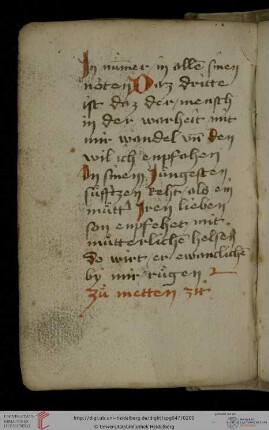 In nùmer in allē sinen
nöten Daz dritte
ist daz der mensch
in der warheit mit
mir wandel vn̄ Den
wil ich enpfahen
In sinen Jùngesten
sùfftzen Reht als ein
mùtt Iren lieben
son enpfehet mit
mùtterliche helsen
So wirt er ewencliche
by mir rùgen
zů metten zit
http://digi.ub.uni-heidelberg.de/diglit/cpg647/0206
© Universitätsbibliothek Heidelberg